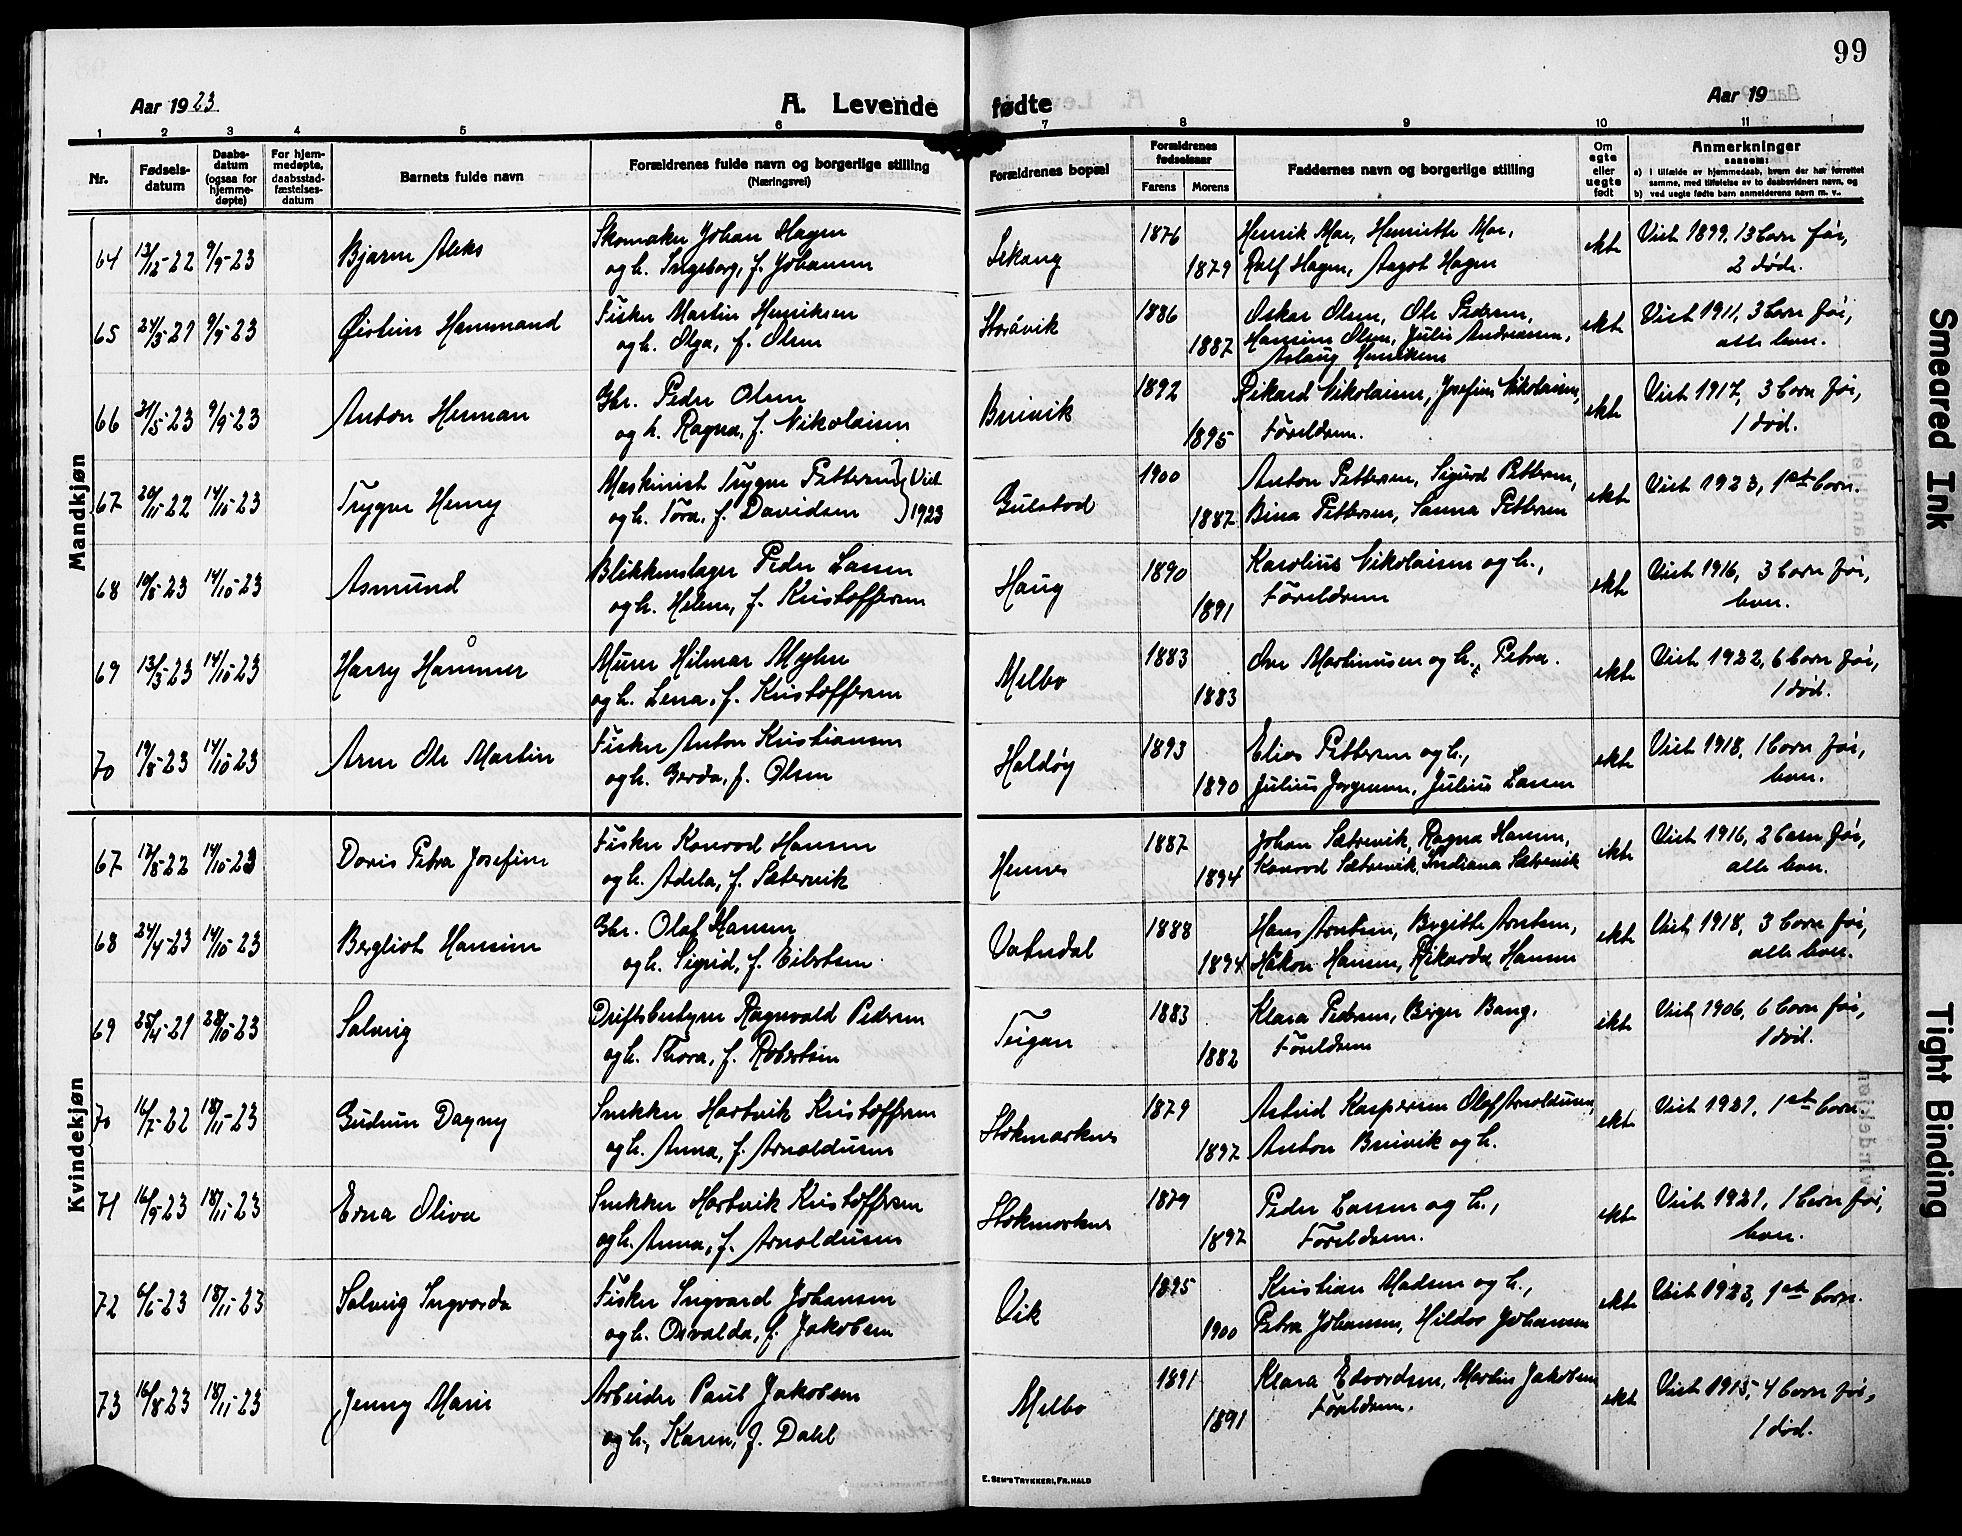 99
Aar 1923
A. Levende fødte
Aar 19
1 2 3 4 5 6 7 8 9 10 11
Nr.
Fødsels-
datum
Daabs-
datum
(ogsaa for
hjemme-
døpte)
For hjem-
medøpte,
daabsstad-
fæstelses-
datum
Barnets fulde navn
Forældrenes fulde navn og borgerlige stilling
(Næringsvei)
Forældrenes bopæl
Forældrenes
fødselsaar
Farens Morens
Faddernes navn og borgerlige stilling
Om
egte
eller
uegte
født
Anmerkninger
saasom:
a) I tilfælde av hjemmedaab, hvem der har forrettet
samme, med tilføielse av to daabsvidners navn, og
b) ved uegte fødte barn anmelderens navn m. v..
Mandkjøn
64 13/12-22 9/9-23 Bjarne Aleks
Skomaker Johan Hagen
og h. Ingeborg, f. Johansen
1876
1879
Henrik Mar, Henriette Mar,
Ralf Hagen, Aagot Hagen
ekte
Viet 1899, 13 born før,
2 døde.
65 9/9-23 Øistein Hammand
Fisker Martin Henriksen
og h. Olga, f. Olsen
Storåvik
1886
1887
Oskar Olsen, Ole Pedersen,
Hansine Olsen, Julie Andreasen,
Aslaug Henriksen
ekte
Viet 1911, 3 born før,
alle lever.
66 31/5-23 9/9-23 Anton Herman
Gbr. Peder Olsen
og h. Ragna, f. Nikolaisen
Breivik
1892
1895
Rikard Nikolaisen, Josefine Nikolaisen,
Foreldrene.
ekte
Viet 1917, 3 born før,
1 død.
67 20/11-22 14/10-23 Trygve Henry
Maskinist Trygve Pettersen } Viet
og h. Tora, f. Davidsen } 1923
Gulstad
1900
1887
Anton Pettersen, Sigurd Pettersen,
Bina Pettersen, Sanna Pettersen
ekte
Viet 1923, 1ste born.
68 10/8-23 14/10-23 Asmund
Blikkenslager Peder Larsen
og h. Helene, f. Kristoffersen
Haug
1890
1891
Karolius Nikolaisen og h.,
Foreldrene
ekte
Viet 1916, 3 born før,
lever.
69 13/3-23 14/10-23 Harry Hammer
Murer Hilmar Myhre
og h. Lena, f. Kristoffersen
Melbo
1883
1883
Ove Martinusen og h., Petra.
ekte
Viet 1922, 6 born før,
1 død.
70 19/8-23 14/10-23 Arne Ole Martin
Fisker Anton Kristiansen
og h. Gerda, f. Olsen
Haldøy
1893
1890
Elias Pettersen og h.,
Julius Jørgensen, Julius Larsen
ekte
Viet 1918, 1 born før,
lever.
Kvindekjøn
67 17/8-22 14/10-23 Doris Petra Josefine
Fisker Konrad Hansen
og h. Adela, f. Sætervik
Hennes
1887
1894
Johan Sætervik, Ragna Hansen,
Konrad Sætervik, Indiana Sætervik
ekte
Viet 1916, 2 born før,
alle lever.
68 24/4-23 14/10-23 Bergliot Hansine
Gbr. Olaf Hansen
og h. Sigrid, f. Eilertsen
Vatndal
1888
1894
Hans Arntsen, Birgitte Arntsen,
Håkon Hansen, Rikarda Hansen
ekte
Viet 1918, 3 born før,
alle lever.
69 25/4-21 28/10-23 Solveig
Driftsbestyrer Ragnvald Pedersen
og h. Thora, f. Robertsen
Teigan
1883
1882
Klara Pedersen, Birger Bang,
Foreldrene
ekte
Viet 1906, 6 born før,
1 død.
70 16/7-22 18/11-23 Gudrun Dagny
Snekker Hartvik Kristoffersen
og h. Anna, f. Arnoldusen
Stokmarknes
1879
1897
Astrid Kaspersen Olaf Arnoldusen,
Anton Breivik og h.
ekte
Viet 1921, 1ste born
71 16/9-23 18/11-23 Edna Oliva
Snekker Hartvik Kristoffersen
og h. Anna, f. Arnoldusen
Stokmarknes
1879
1897
Peder Larsen og h.,
Foreldrene.
ekte
Viet 1921, 1 born før,
lever.
72 6/6-23 18/11-23 Solveig Ingvarda
Fisker Ingvard Johansen
og h. Osvalda, f. Jakobsen
Vik
1895
1900
Kristian Madsen og h.,
Petra Johansen, Hildor Johansen
ekte
Viet 1923, 1ste born.
73 16/8-23 18/11-23 Jenny Marie
Arbeider Paul Jakobsen
og h., Karen, f. Dahl
Melbo
1891
1891
Klara Edvardsen, Martin Jakobsen
Foreldrene.
ekte
Viet 1915, 4 born før,
1 død.
E. Sem's Trykkeri, Fr.hald
Smeared Ink
Tight Binding